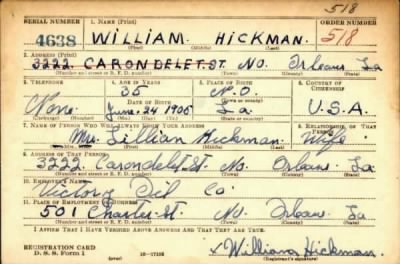 518
SERIAL NUMBER 1. NAME (Print) ORDER NUMBER
4638 WILLIAM HICKMAN. 518
(First) (Middle) (Last)
2. ADDRESS (Print)
3222 CARONDELET.ST. No. Orleans La
(Number and street or R. F. D. number) (Town) (County) (State)
3. TELEPHONE 4. AGE IN YEARS 5. PLACE OF BIRTH 6. COUNTRY OF CITIZENSHIP
35 N.O.
None DATE OF BIRTH (Town or county)
June. 24 1905 La U.S.A.
(Mo.) (Day) (Yr.) (State or country)
7. NAME OF PERSON WHO WILL ALWAYS KNOW YOUR ADDRESS 8. RELATIONSHIP OF THAT PERSON
Mrs. Lillian Hickman. Wife
(Mr., Mrs., Miss) (First) (Middle) (Last)
9. ADDRESS OF THAT PERSON
3222 Carondelet.St. No. Orleans. La.
(Number and street or R. F. D. number) (Town) (County) (State)
10. EMPLOYER'S NAME
Victory Oil Co.
11. PLACE OF EMPLOYMENT OR BUSINESS
501 Charter.St. No. Orleans. La.
(Number and street or R. F. D. number) (Town) (County) (State)
I AFFIRM THAT I HAVE VERIFIED ABOVE ANSWERS AND THAT THEY ARE TRUE.
REGISTRATION CARD
D. S. S. Form 1 x William Hickman.